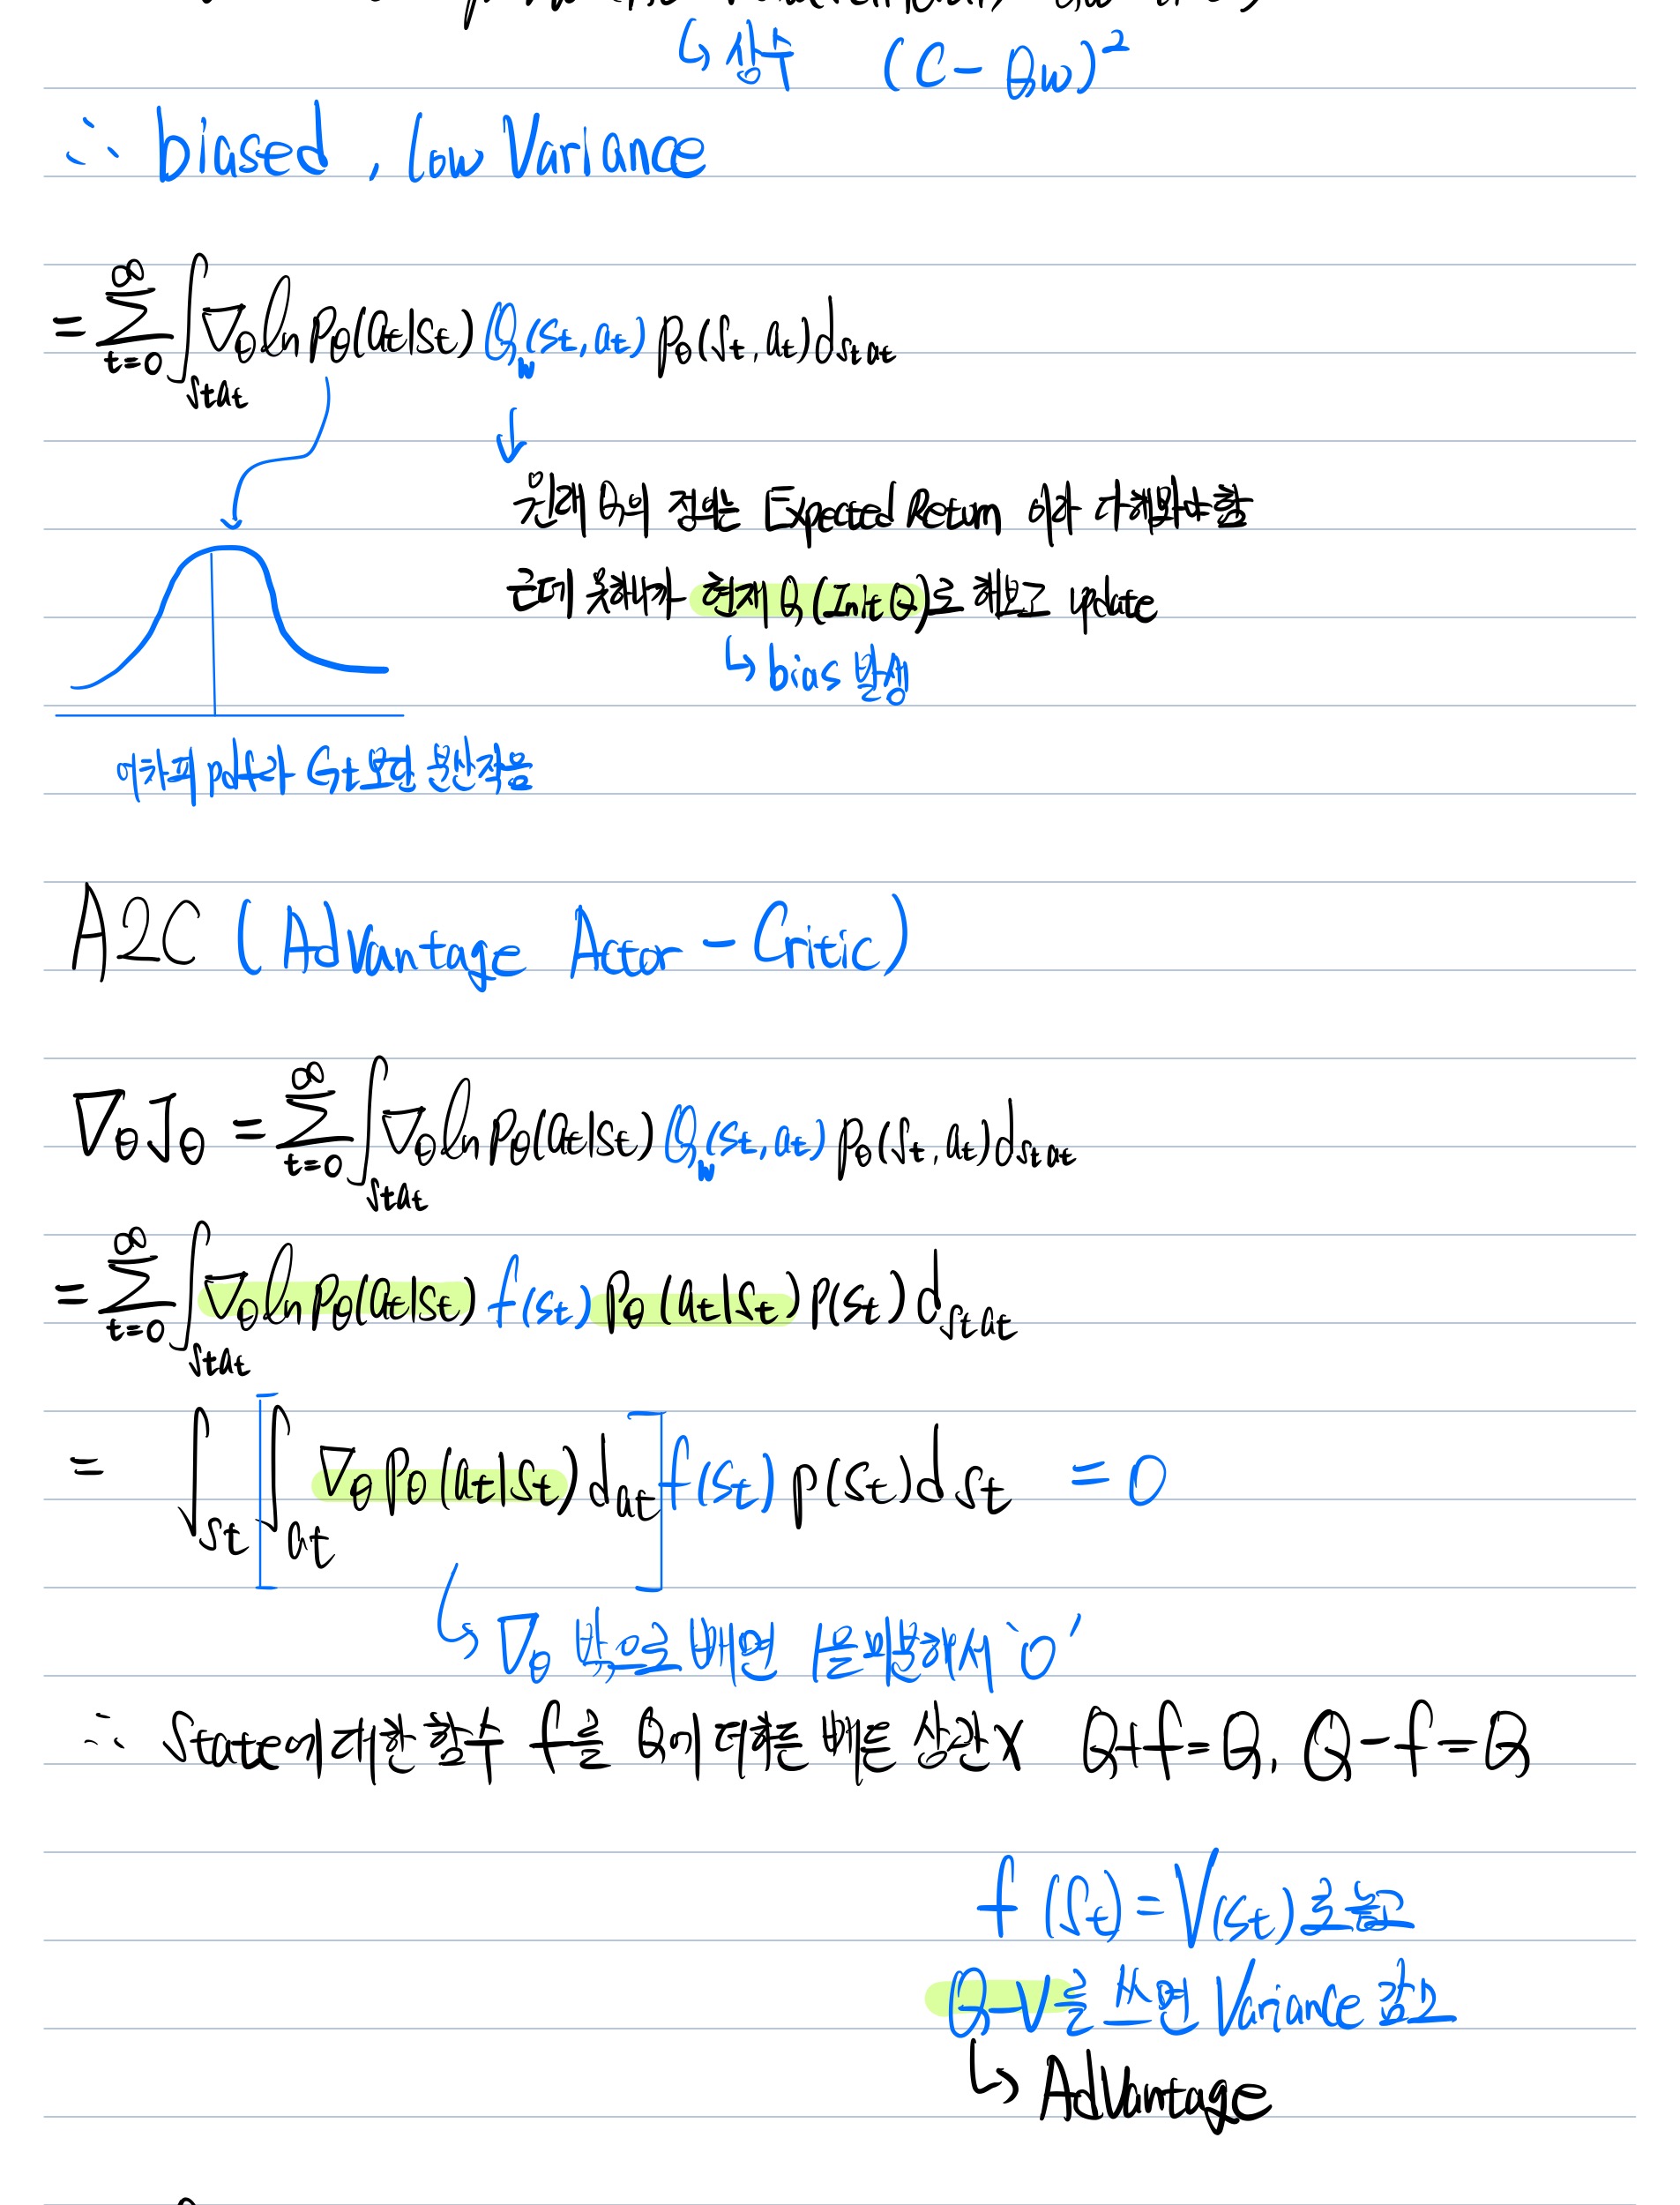 ↳ 상수 (C - Qw)²
∴ biased, low Variance
= ∞ Σ t=0 ∫ st at ∇θ ln Pθ(at|st) Qw(st, at) Pθ(st, at) d st at
↓
원래 Q의 정의는 Expected Return 이라 다해봐야함
근데 못하니까 현재 Q (Init Q)로 해보고 update
↳ bias 발생
어차피 pdf라 Gt보단 분산작음
A2C (Advantage Actor - Critic)
∇θ Jθ = ∞ Σ t=0 ∫ st at ∇θ ln Pθ(at|st) Qw(st, at) Pθ(st, at) d st at
= ∞ Σ t=0 ∫ st at ∇θ ln Pθ(at|st) f(st) Pθ(at|st) P(st) d st at
= ∫ st [∫ at ∇θ Pθ(at|st) d at] f(st) p(st) d st = 0
↳ ∇θ 밖으로 빼면 1을 미분해서 '0'
∴ State에 대한 함수 f를 Q에 더하든 빼든 상관X Q+f=Q, Q-f=Q
f(st) = V(st)로 놓고
Q-V를 쓰면 Variance 감소
↳ Advantage